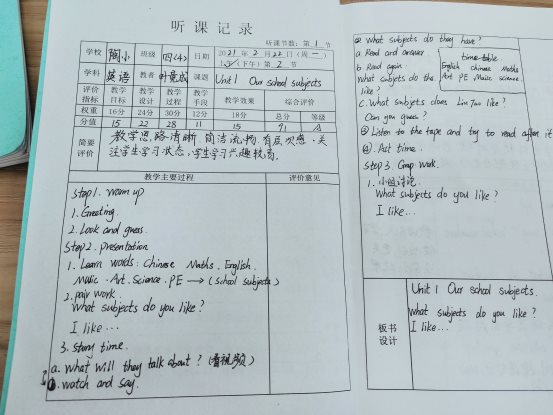 听课记录
听课节数：第 1 节
学校 陶小 班级 四(4) 日期 2021年2月22日（周一）
上午（下午）第2节
学科 英语 教者 课题 Unit 1 Our school subjects
评价指标 教学目标 教学设计 教学过程 教学手段 教学效果 综合评价
权重 16分 24分 30分 12分 18分 总分 等级
分值 15 22 28 11 15 91 A
简要评价 教学思路清晰 简洁流畅 有层次感．关
注学生学习状态，学生学习兴趣较高．
教学主要过程 评价意见
Step 1. Warm up
1. Greeting.
2. Look and guess.
Step 2. Presentation
1. Learn words: Chinese Maths. English.
Music. Art. Science. PE → (school subjects)
2. pair work.
What subjects do you like?
I like...
3. Story time.
a. What will they talk about? (看视频)
b. watch and say.
② What subjects do they have?
a Read and answer.
b Read again.
time-table
English Chinese Maths
Art PE Music science
What subjects do the
like?
C. What subjects does Liu Tao like?
Can you guess?
③ Listen to the tape and try to read after it
④. Act time.
Step 3. Group work.
1. 小组讨论.
What subjects do you like?
I like...
板书设计
Unit 1 Our school subjects.
What subjects do you like?
I like...